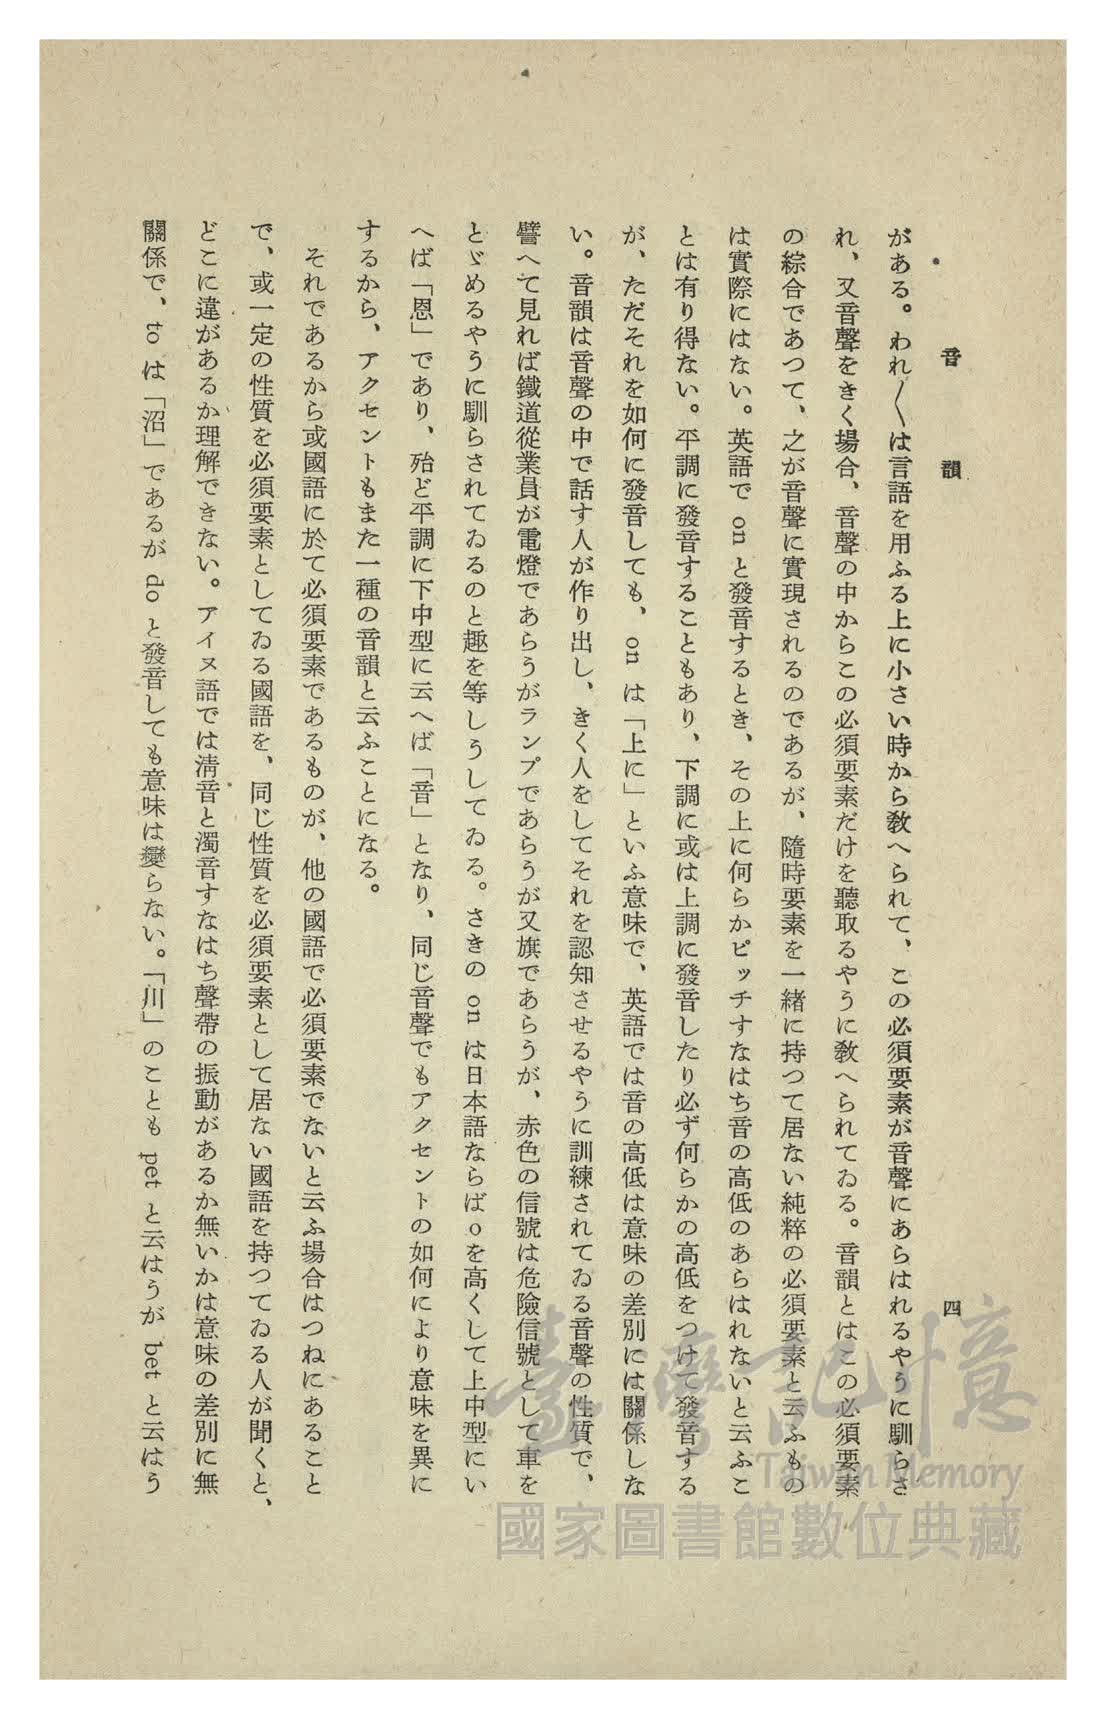 音韻
四
がある。われ〳〵は言語を用ふる上に小さい時から教へられて、この必須要素が音聲にあらはれるやうに馴らさ
れ、又音聲をきく場合、音聲の中からこの必須要素だけを聽取るやうに教へられてゐる。音韻とはこの必須要素
の綜合であつて、之が音聲に實現されるのであるが、隨時要素を一緒に持つて居ない純粹の必須要素と云ふもの
は實際にはない。英語で on と發音するとき、その上に何らかピッチすなはち音の高低のあらはれないと云ふこ
とは有り得ない。平調に發音することもあり、下調に或は上調に發音したり必ず何らかの高低をつけて發音する
が、ただそれを如何に發音しても、on は「上に」といふ意味で、英語では音の高低は意味の差別には關係しな
い。音韻は音聲の中で話す人が作り出し、きく人をしてそれを認知させるやうに訓練されてゐる音聲の性質で、
譬へて見れば鐵道從業員が電燈であらうがランプであらうが又旗であらうが、赤色の信號は危險信號として車を
とゞめるやうに馴らされてゐるのと趣を等しうしてゐる。さきの on は日本語ならば o を高くして上中型にい
へば「恩」であり、殆ど平調に下中型に云へば「音」となり、同じ音聲でもアクセントの如何により意味を異に
するから、アクセントもまた一種の音韻と云ふことになる。
それであるから或國語に於て必須要素であるものが、他の國語で必須要素でないと云ふ場合はつねにあること
で、或一定の性質を必須要素としてゐる國語を、同じ性質を必須要素として居ない國語を持つてゐる人が聞くと、
どこに違があるか理解できない。アイヌ語では淸音と濁音すなはち聲帶の振動があるか無いかは意味の差別に無
關係で、to は「沼」であるが do と發音しても意味は變らない。「川」のことも pet と云はうが bet と云はう
臺灣記憶
Taiwan Memory
國家圖書館數位典藏